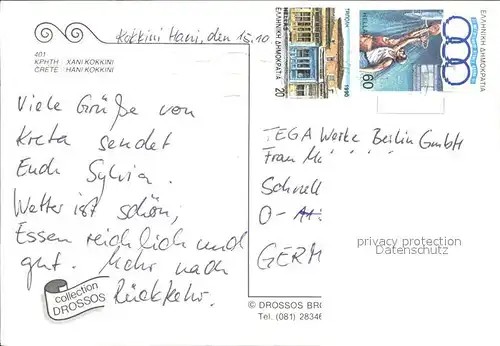 Kokkini Hani, den 15.10
401
ΚΡΗΤΗ : ΧΑΝΙ ΚΟΚΚΙΝΙ
CRETE : HANI KOKKINI
Viele Grüße von
Kreta sendet
Euch Sylvia.
Wetter ist schön,
Essen reichlich und
gut. Mehr nach
Rückkehr.
collection
DROSSOS
HELLAS
ΕΛΛΗΝΙΚΗ ΔΗΜΟΚΡΑΤΙΑ
20
1990
HELLAS
60
ΕΛΛΗΝΙΚΗ ΔΗΜΟΚΡΑΤΙΑ
TEGA Werke Berlin GmbH
Frau
Schnell
O-
GERM
privacy protection
Datenschutz
© DROSSOS BRO
Tel. (081) 28346